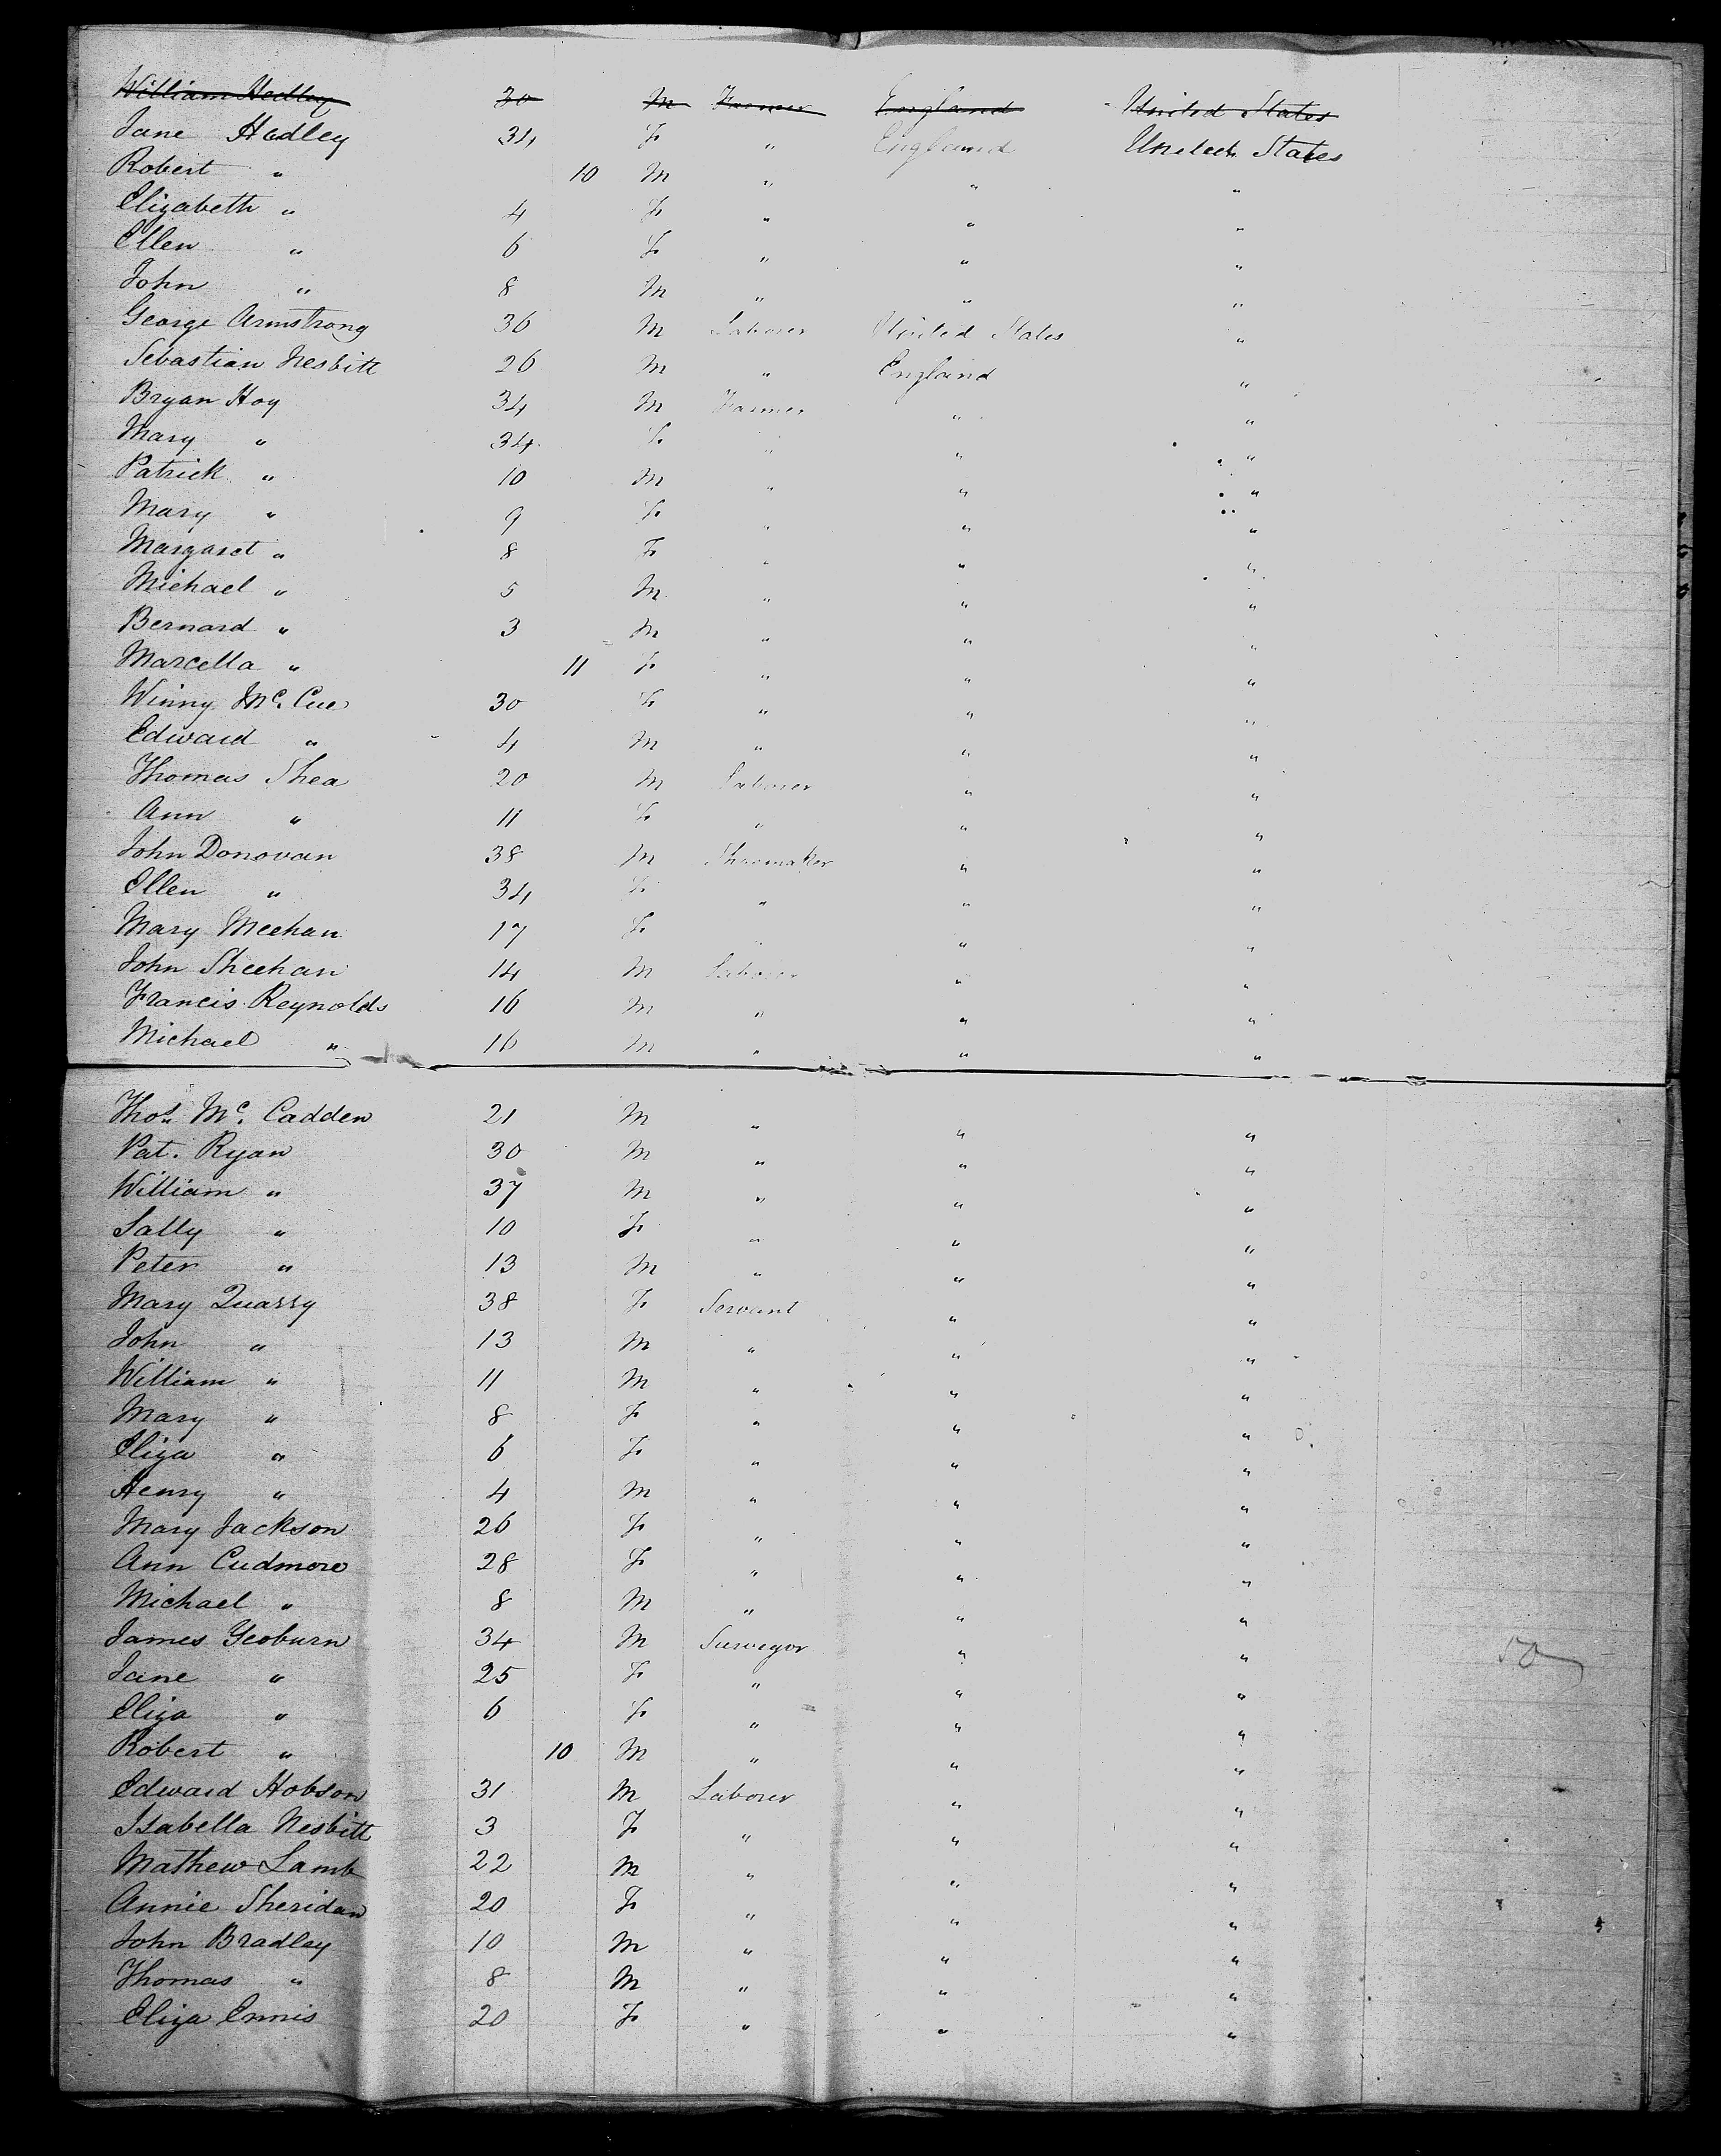 William Hedley 30 M Farmer England United States
Jane Hadley 34 F " England United States
Robert " 10 M " " "
Elizabeth " 4 F " " "
Ellen " 6 F " " "
John " 8 M " " "
George Armstrong 36 M Laborer United States "
Sebastian Nesbitt 26 M " England "
Bryan Hoy 34 M Farmer " "
Mary " 34 F " " "
Patrick " 10 M " " "
Mary " 9 F " " "
Margaret " 8 F " " "
Michael " 5 M " " "
Bernard " 3 M " " "
Marcella " 11 F " " "
Winny Mc. Cue 30 F " " "
Edward " 4 M " " "
Thomas Shea 20 M Laborer " "
Ann " 11 F " " "
John Donovan 38 M Shoemaker " "
Ellen " 34 F " " "
Mary Meehan 17 F " " "
John Sheehan 14 M Laborer " "
Francis Reynolds 16 M " " "
Michael " 16 M " " "
Thos. Mc. Cadden 21 M " " "
Pat. Ryan 30 M " " "
William " 37 M " " "
Sally " 10 F " " "
Peter " 13 M " " "
Mary Quassy 38 F Servant " "
John " 13 M " " "
William " 11 M " " "
Mary " 8 F " " "
Eliza " 6 F " " "
Henry " 4 M " " "
Mary Jackson 26 F " " "
Ann Cudmore 28 F " " "
Michael " 8 M " " "
James Yeoburn 34 M Surveyor " "
Jane " 25 F " " "
Eliza " 6 F " " "
Robert " 10 M " " "
Edward Hobson 31 M Laborer " "
Isabella Nesbitt 3 F " " "
Mathew Lamb 22 M " " "
Annie Sheridan 20 F " " "
John Bradley 10 M " " "
Thomas " 8 M " " "
Eliza Ennis 20 F " " "